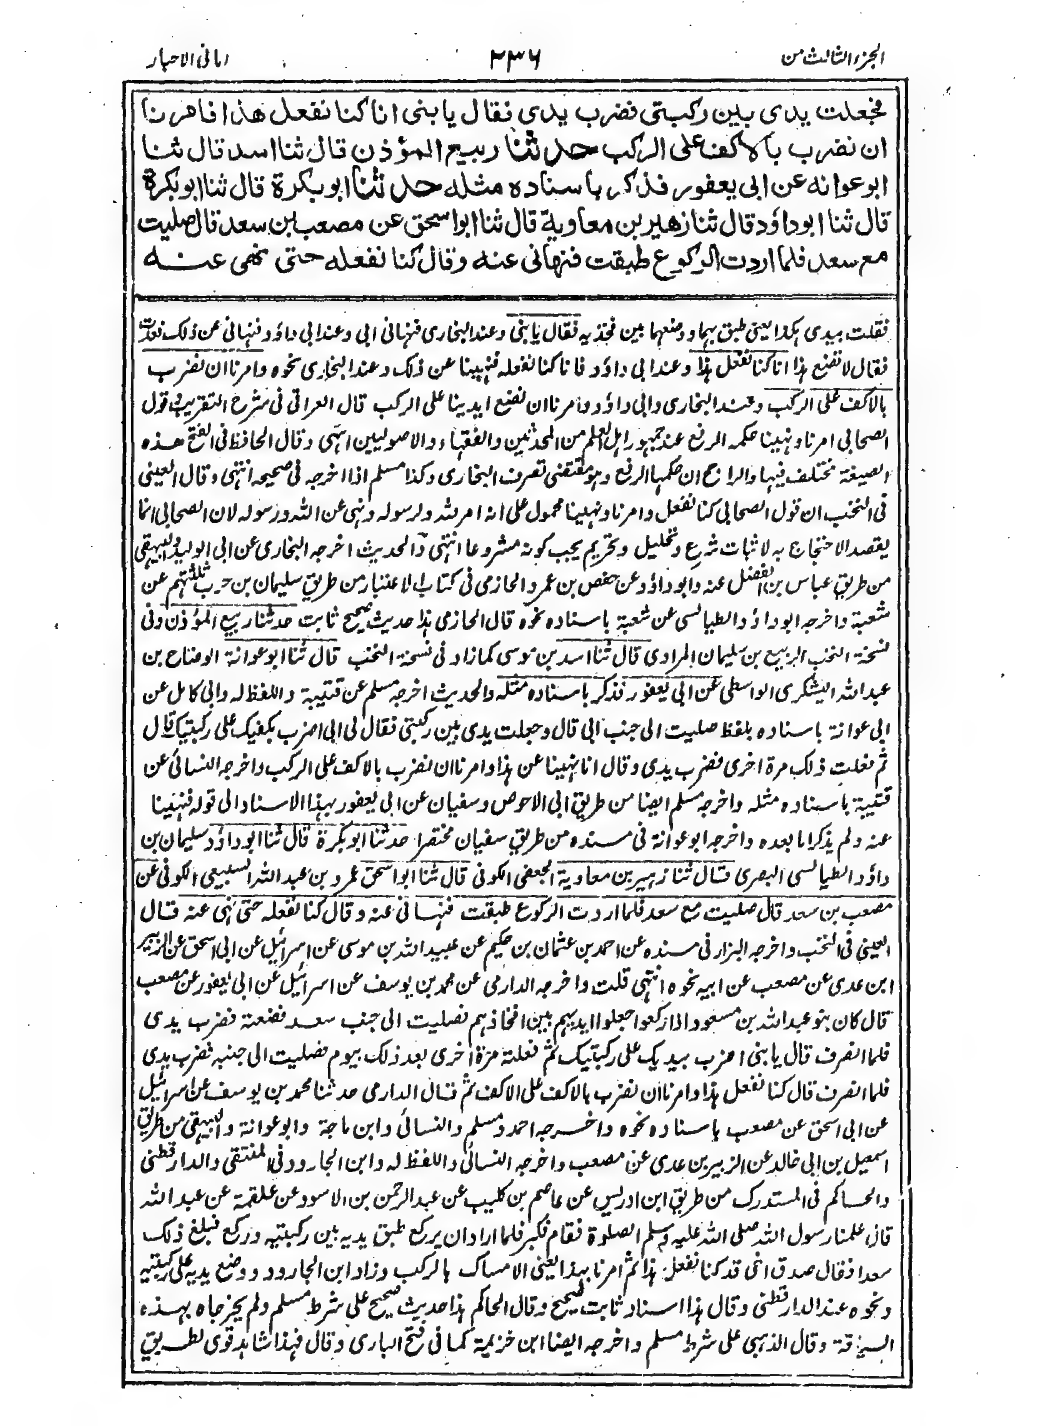 الجزء الثالث من
٢٣٦
امانی الاحبار
فجعلت یدی بین رکبتی فضرب یدی فقال یا بنی انا کنا نفعل هذا فامرنا
ان نضرب بالاکف علی الرکب حدثنا ربیع المؤذن قال ثنا اسد قال ثنا
ابو عوانه عن ابی یعفور فذکر باسناده مثله حدثنا ابو بکرة قال ثنا ابو بکرة
قال ثنا ابو داؤد قال ثنا زهیر بن معاویة قال ثنا ابو اسحق عن مصعب بن سعد قال صلیت
مع سعد فلما اردت الرکوع طبقت فنهانی عنه وقال کنا نفعله حتی نهی عنه
فقلت بیدی هکذا یعنی طبق بهما ووضعهما بین فخذیه فقال یا بنی وعند البخاری فنهانی ابی وعند ابی داؤد فنهانی عن ذلک فعدت
فقال لا تصنع هذا انا کنا نفعل هذا وعند ابی داؤد فانا کنا نفعله فنهینا عن ذلک وعند البخاری نحوه وامرنا ان نضرب
بالاکف علی الرکب وعند البخاری وابی داؤد وامرنا ان نضع ایدینا علی الرکب قال العراقی فی شرح التقریب قول
الصحابی امرنا ونهینا حکمه الرفع عند جمهور اهل العلم من المحدثین والفقهاء والاصولیین انتهی وقال الحافظ فی الفتح هذه
الصیغة مختلف فیها والراجح ان حکمها الرفع وهو مقتضی تصرف البخاری وکذا مسلم اذا اخرجه فی صحیحه انتهی وقال العینی
فی النخب ان قول الصحابی کنا نفعل وامرنا ونهینا محمول علی انه امر لله ولرسوله ونهی عن الله ورسوله لان الصحابی انما
یقصد الاحتجاج به لاثبات شرع وتحلیل وتحریم یجب کونه مشروعا انتهی والحدیث اخرجه البخاری عن ابی الولید والبیهقی
من طریق عباس بن الفضل عنه وابو داؤد عن حفص بن عمر والحازمی فی کتاب الاعتبار من طریق سلیمان بن حرب ثلثتهم عن
شعبة واخرجه ابو داؤد والطیالسی عن شعبة باسناده نحوه قال الحازمی هذا حدیث صحیح ثابت حدثنا ربیع المؤذن وفی
نسخة النخب الربیع بن سلیمان المرادی قال ثنا اسد بن موسی کما زاد فی نسخة النخب قال ثنا ابو عوانة الوضاح بن
عبد الله الیشکری الواسطی عن ابی یعفور فذکر باسناده مثله والحدیث اخرجه مسلم عن قتیبة واللفظ له وابی کامل عن
ابی عوانة باسناده بلفظ صلیت الی جنب ابی قال وجعلت یدی بین رکبتی فقال لی ابی اضرب بکفیک علی رکبتیک قال
ثم فعلت ذلک مرة اخری فضرب یدی وقال انا نهینا عن هذا وامرنا ان نضرب بالاکف علی الرکب واخرجه النسائی عن
قتیبة باسناده مثله واخرجه مسلم ایضا من طریق ابی الاحوص وسفیان عن ابی یعفور بهذا الاسناد الی قوله فنهینا
عنه ولم یذکرا ما بعده واخرجه ابو عوانة فی مسنده من طریق سفیان مختصرا حدثنا ابو بکرة قال ثنا ابو داؤد سلیمان بن
داؤد الطیالسی البصری قال ثنا زهیر بن معاویة الجعفی الکوفی قال ثنا ابو اسحق عمرو بن عبد الله السبیعی الکوفی عن
مصعب بن سعد قال صلیت مع سعد فلما اردت الرکوع طبقت فنهانی عنه وقال کنا نفعله حتی نهی عنه قال
العینی فی النخب واخرجه البزار فی مسنده عن احمد بن عثمان بن حکیم عن عبید الله بن موسی عن اسرائیل عن ابی اسحق عن الزبیر
ابن عدی عن مصعب عن ابیه نحوه انتهی قلت واخرجه الدارمی عن محمد بن یوسف عن اسرائیل عن ابی یعفور عن مصعب
قال کان بنو عبد الله بن مسعود اذا رکعوا جعلوا ایدیهم بین افخاذهم فصلیت الی جنب سعد فصنعته فضرب یدی
فلما انصرف قال یا بنی اضرب بیدیک علی رکبتیک ثم فعلته مرة اخری بعد ذلک بیوم فصلیت الی جنبه فضرب یدی
فلما انصرف قال کنا نفعل هذا وامرنا ان نضرب بالاکف علی الاکف ثم قال الدارمی حدثنا محمد بن یوسف عن اسرائیل
عن ابی اسحق عن مصعب باسناده نحوه واخرجه احمد ومسلم والنسائی وابن ماجة وابو عوانة والبیهقی من طریق
اسمعیل بن ابی خالد عن الزبیر بن عدی عن مصعب واخرجه النسائی واللفظ له وابن الجارود فی المنتقی والدارقطنی
والحاکم فی المستدرک من طریق ابن ادریس عن عاصم بن کلیب عن عبد الرحمن بن الاسود عن علقمة عن عبد الله
قال علمنا رسول الله صلی الله علیه وسلم الصلوة فقام فکبر فلما اراد ان یرکع طبق یدیه بین رکبتیه ورکع فبلغ ذلک
سعدا فقال صدق اخی قد کنا نفعل هذا ثم امرنا بهذا یعنی الامساک بالرکب وزاد ابن الجارود ووضع یدیه علی رکبتیه
ونحوه عند الدارقطنی وقال هذا اسناد ثابت صحیح وقال الحاکم هذا حدیث صحیح علی شرط مسلم ولم یخرجاه بهذه
السیاقة وقال الذهبی علی شرط مسلم واخرجه ایضا ابن خزیمة کما فی فتح الباری وقال فهذا شاهد قوی لطریق